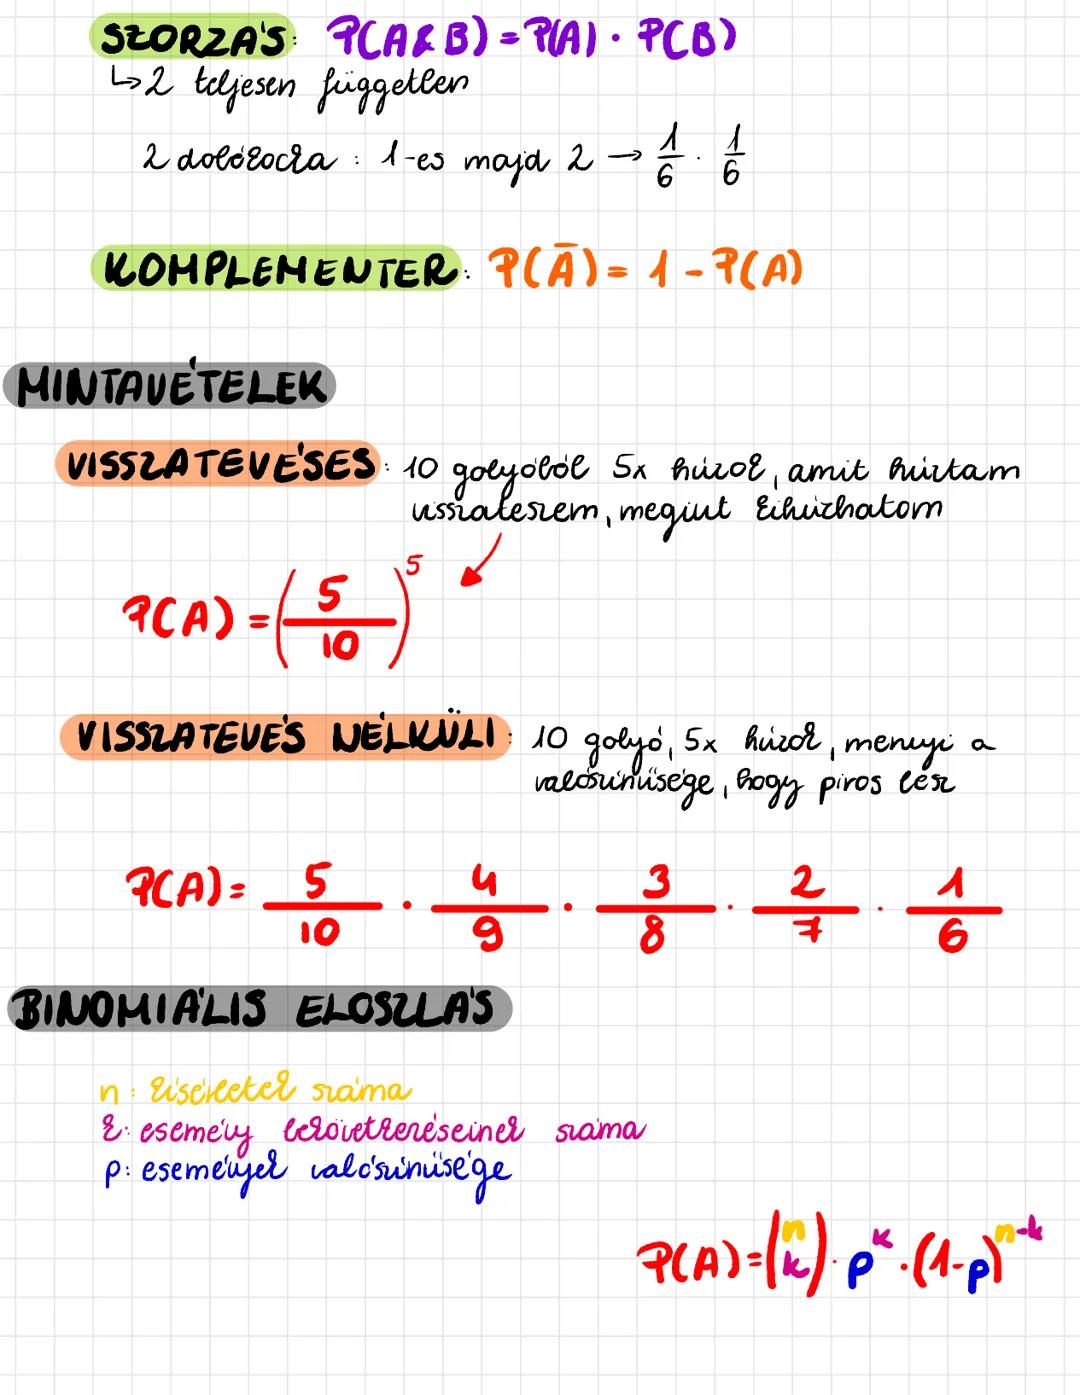 SZORZÁS: P(A&B)=P(A)·P(B)
↳2 teljesen független
2 dobókocka: 1-es majd 2 → 1/6 · 1/6
KOMPLEMENTER: P(Ā)= 1 - P(A)
MINTAVÉTELEK
VISSZATEVÉSES: 10 golyóból 5x húzok, amit húztam
visszateszem, megint kihúzhatom
P(A) = (5/10)^5
VISSZATEVÉS NÉLKÜLI: 10 golyó, 5x húzok, mennyi a
valószínűsége, hogy piros lesz
P(A)= 5/10 · 4/9 · 3/8 · 2/7 · 1/6
BINOMIÁLIS ELOSZLÁS
n: kísérletek száma
k: esemény bekövetkezéseinek száma
p: események valószínűsége
P(A)=(n k)·p^k·(1-p)^n-k